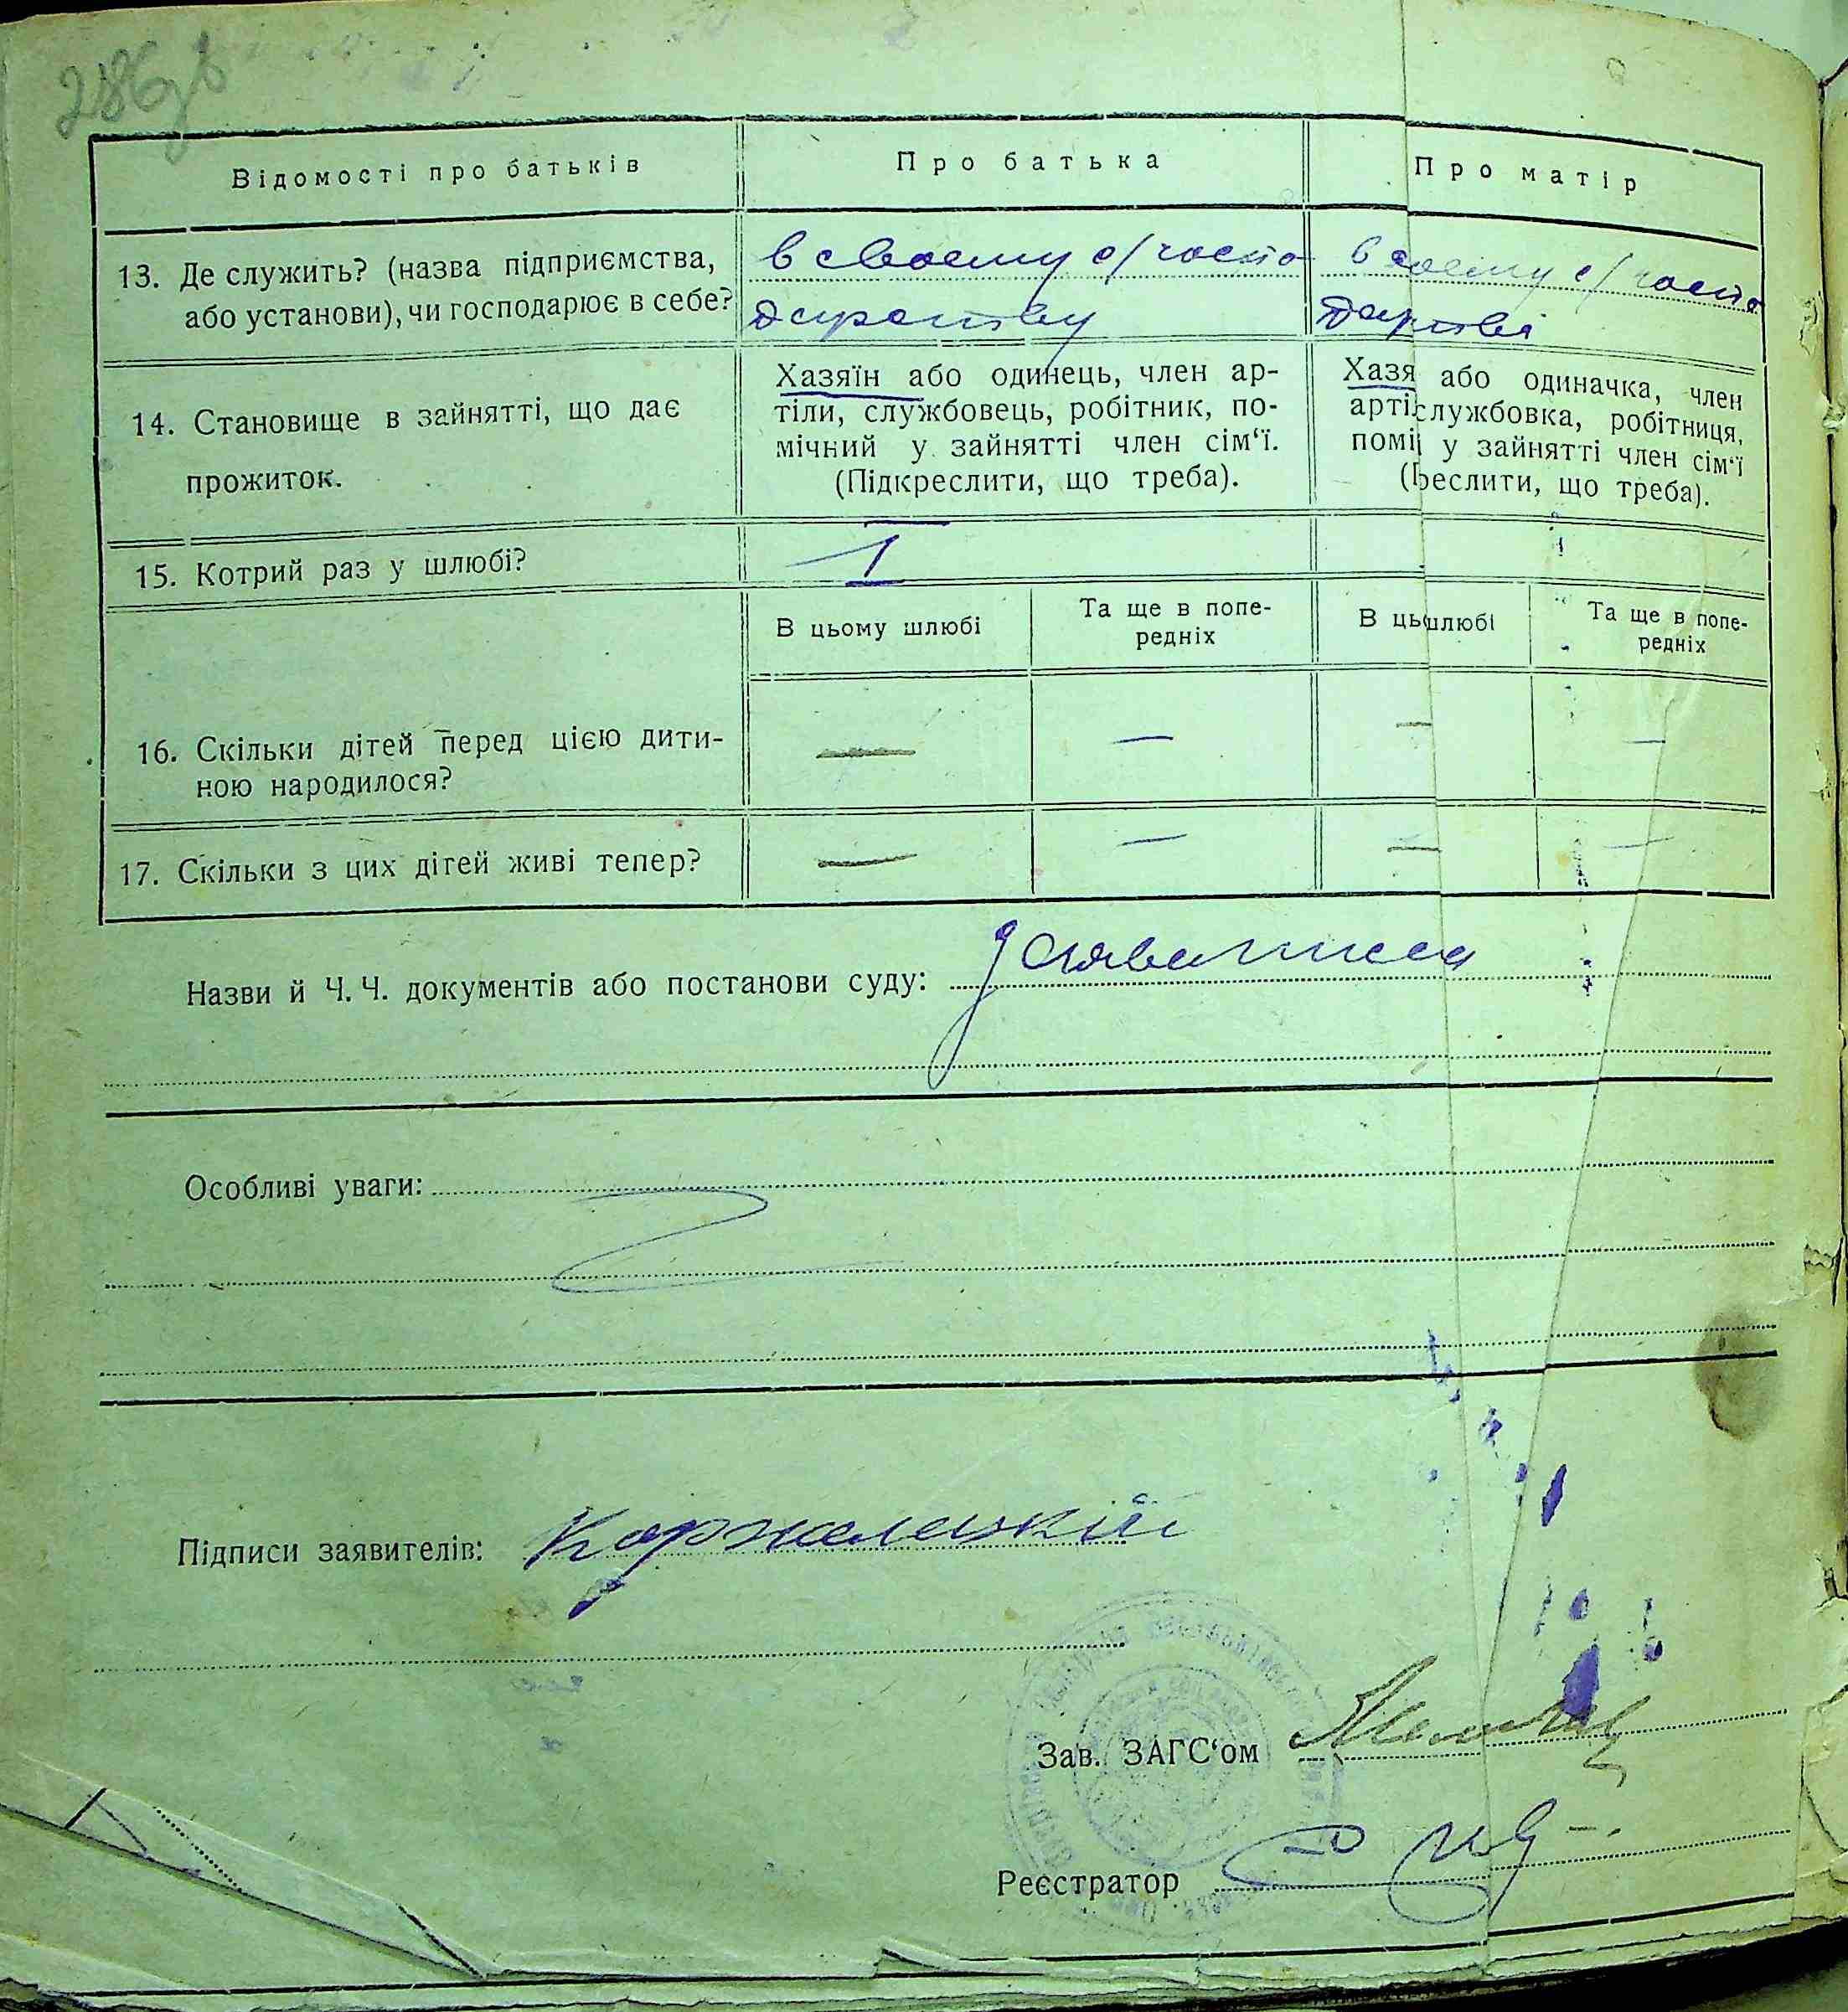 286зв
Відомості про батьків
Про батька
Про матір
13. Де служить? (назва підприємства,
або установи), чи господарює в себе?
в своєму с/госпо
дарству
в своєму с/госпо
дарстві
14. Становище в зайнятті, що дає
прожиток.
Хазяїн або одинець, член ар-
тіли, службовець, робітник, по-
мічний у зайнятті член сім‘ї.
(Підкреслити, що треба).
Хазя або одиначка, член
арті службовка, робітниця,
помі у зайнятті член сім‘ї
(еслити, що треба).
15. Котрий раз у шлюбі?
1
В цьому шлюбі
Та ще в попе-
редніх
В ць шлюбі
Та ще в попе-
редніх
16. Скільки дітей перед цією дити-
ною народилося?
— — — —
17. Скільки з цих дітей живі тепер?
— — — —
Назви й Ч. Ч. документів або постанови суду:
Особливі уваги:
Підписи заявителів:
Зав. ЗАГС‘ом
Реєстратор